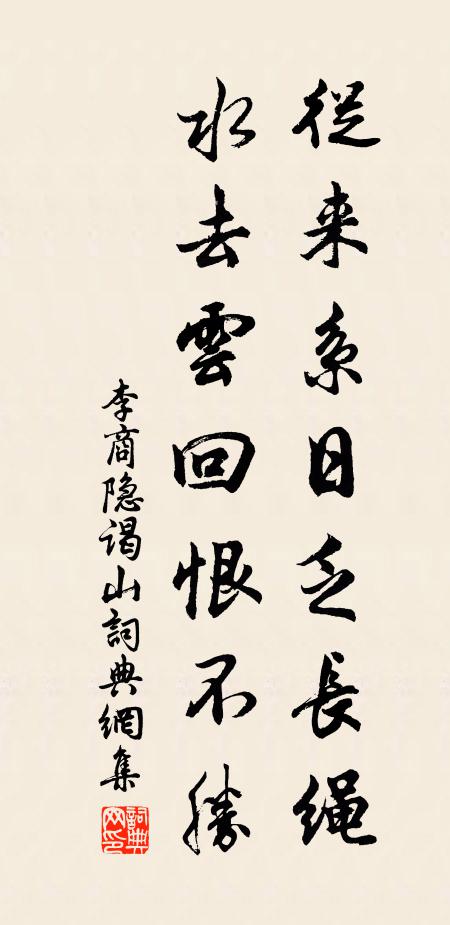 從来系日乏長绳
水去雲回恨不勝
李商隐谒山詞典網集
詞典網印